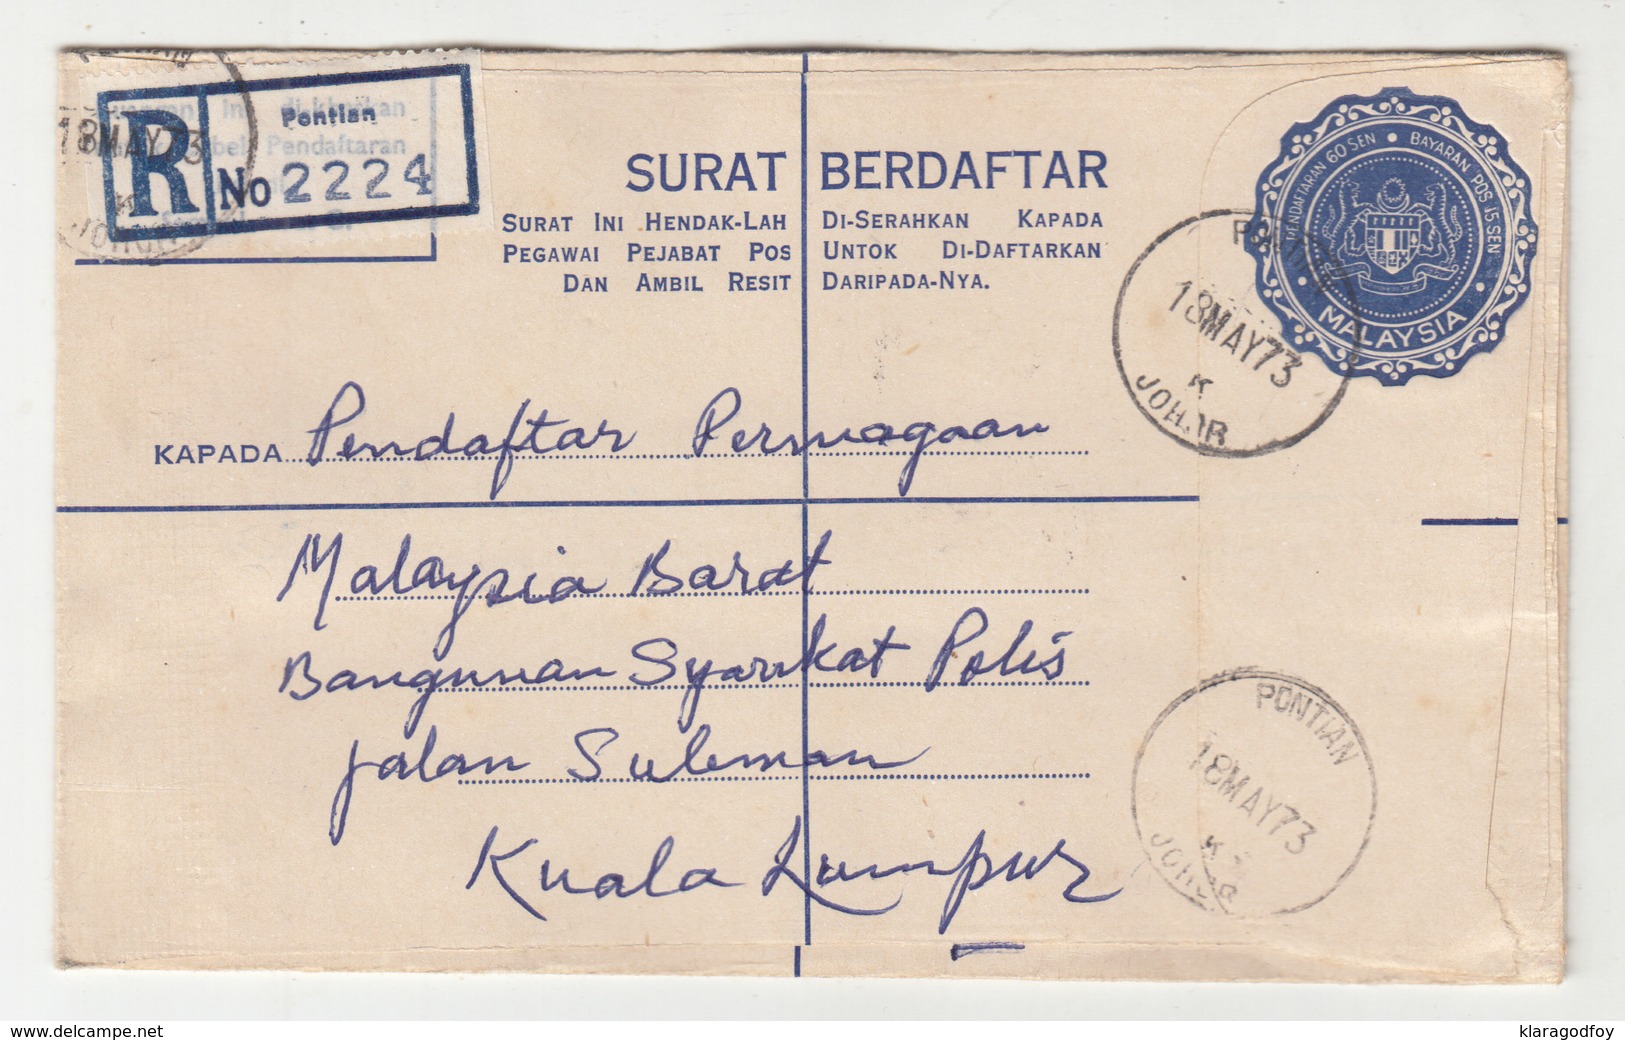 PONTIAN
18MAY73
K
JOHOR
R
Pontian
No 2224
Pendaftaran
SURAT BERDAFTAR
SURAT INI HENDAK-LAH DI-SERAHKAN KAPADA
PEGAWAI PEJABAT POS UNTOK DI-DAFTARKAN
DAN AMBIL RESIT DARIPADA-NYA.
PENDAFTARAN 60 SEN • BAYARAN POS 15 SEN
MALAYSIA
PONTIAN
18MAY73
K
JOHOR
KAPADA Pendaftar Perniagaan
Malaysia Barat
Bangunan Syarikat Polis
Jalan Suleman
Kuala Lumpur
PONTIAN
18MAY73
K
JOHOR
delcampe.net
klaragodfoy